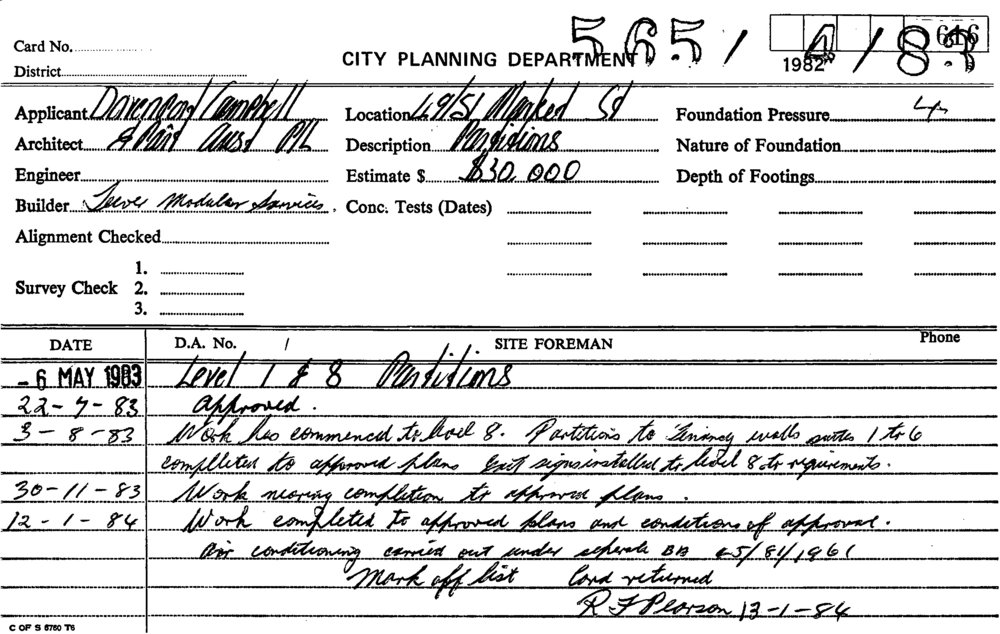 Card No.
565/4/83
616
CITY PLANNING DEPARTMENT
1982
District
Applicant Davenport Campbell
Location 49/51 Market St
Foundation Pressure
Architect & Part Aust P/L
Description Partitions
Nature of Foundation
Engineer
Estimate $ $30,000
Depth of Footings
Builder Modular Services.
Conc. Tests (Dates)
Alignment Checked
1.
Survey Check 2.
3.
DATE D.A. No. / SITE FOREMAN Phone
- 6 MAY 1983 Level 1 & 8 Partitions
22-7-83 Approved.
3-8-83 Work has commenced to level 8. Partitions to Tenancy walls suites 1 to 6
completed to approved plans Exit signs installed to level 8 to requirements.
30-11-83 Work nearing completion to approved plans.
12-1-84 Work completed to approved plans and conditions of approval.
Air conditioning carried out under seperate BA 45/81/1961
Mark off list Card returned
R F Pearson 13-1-84
C OF S 6760 T6